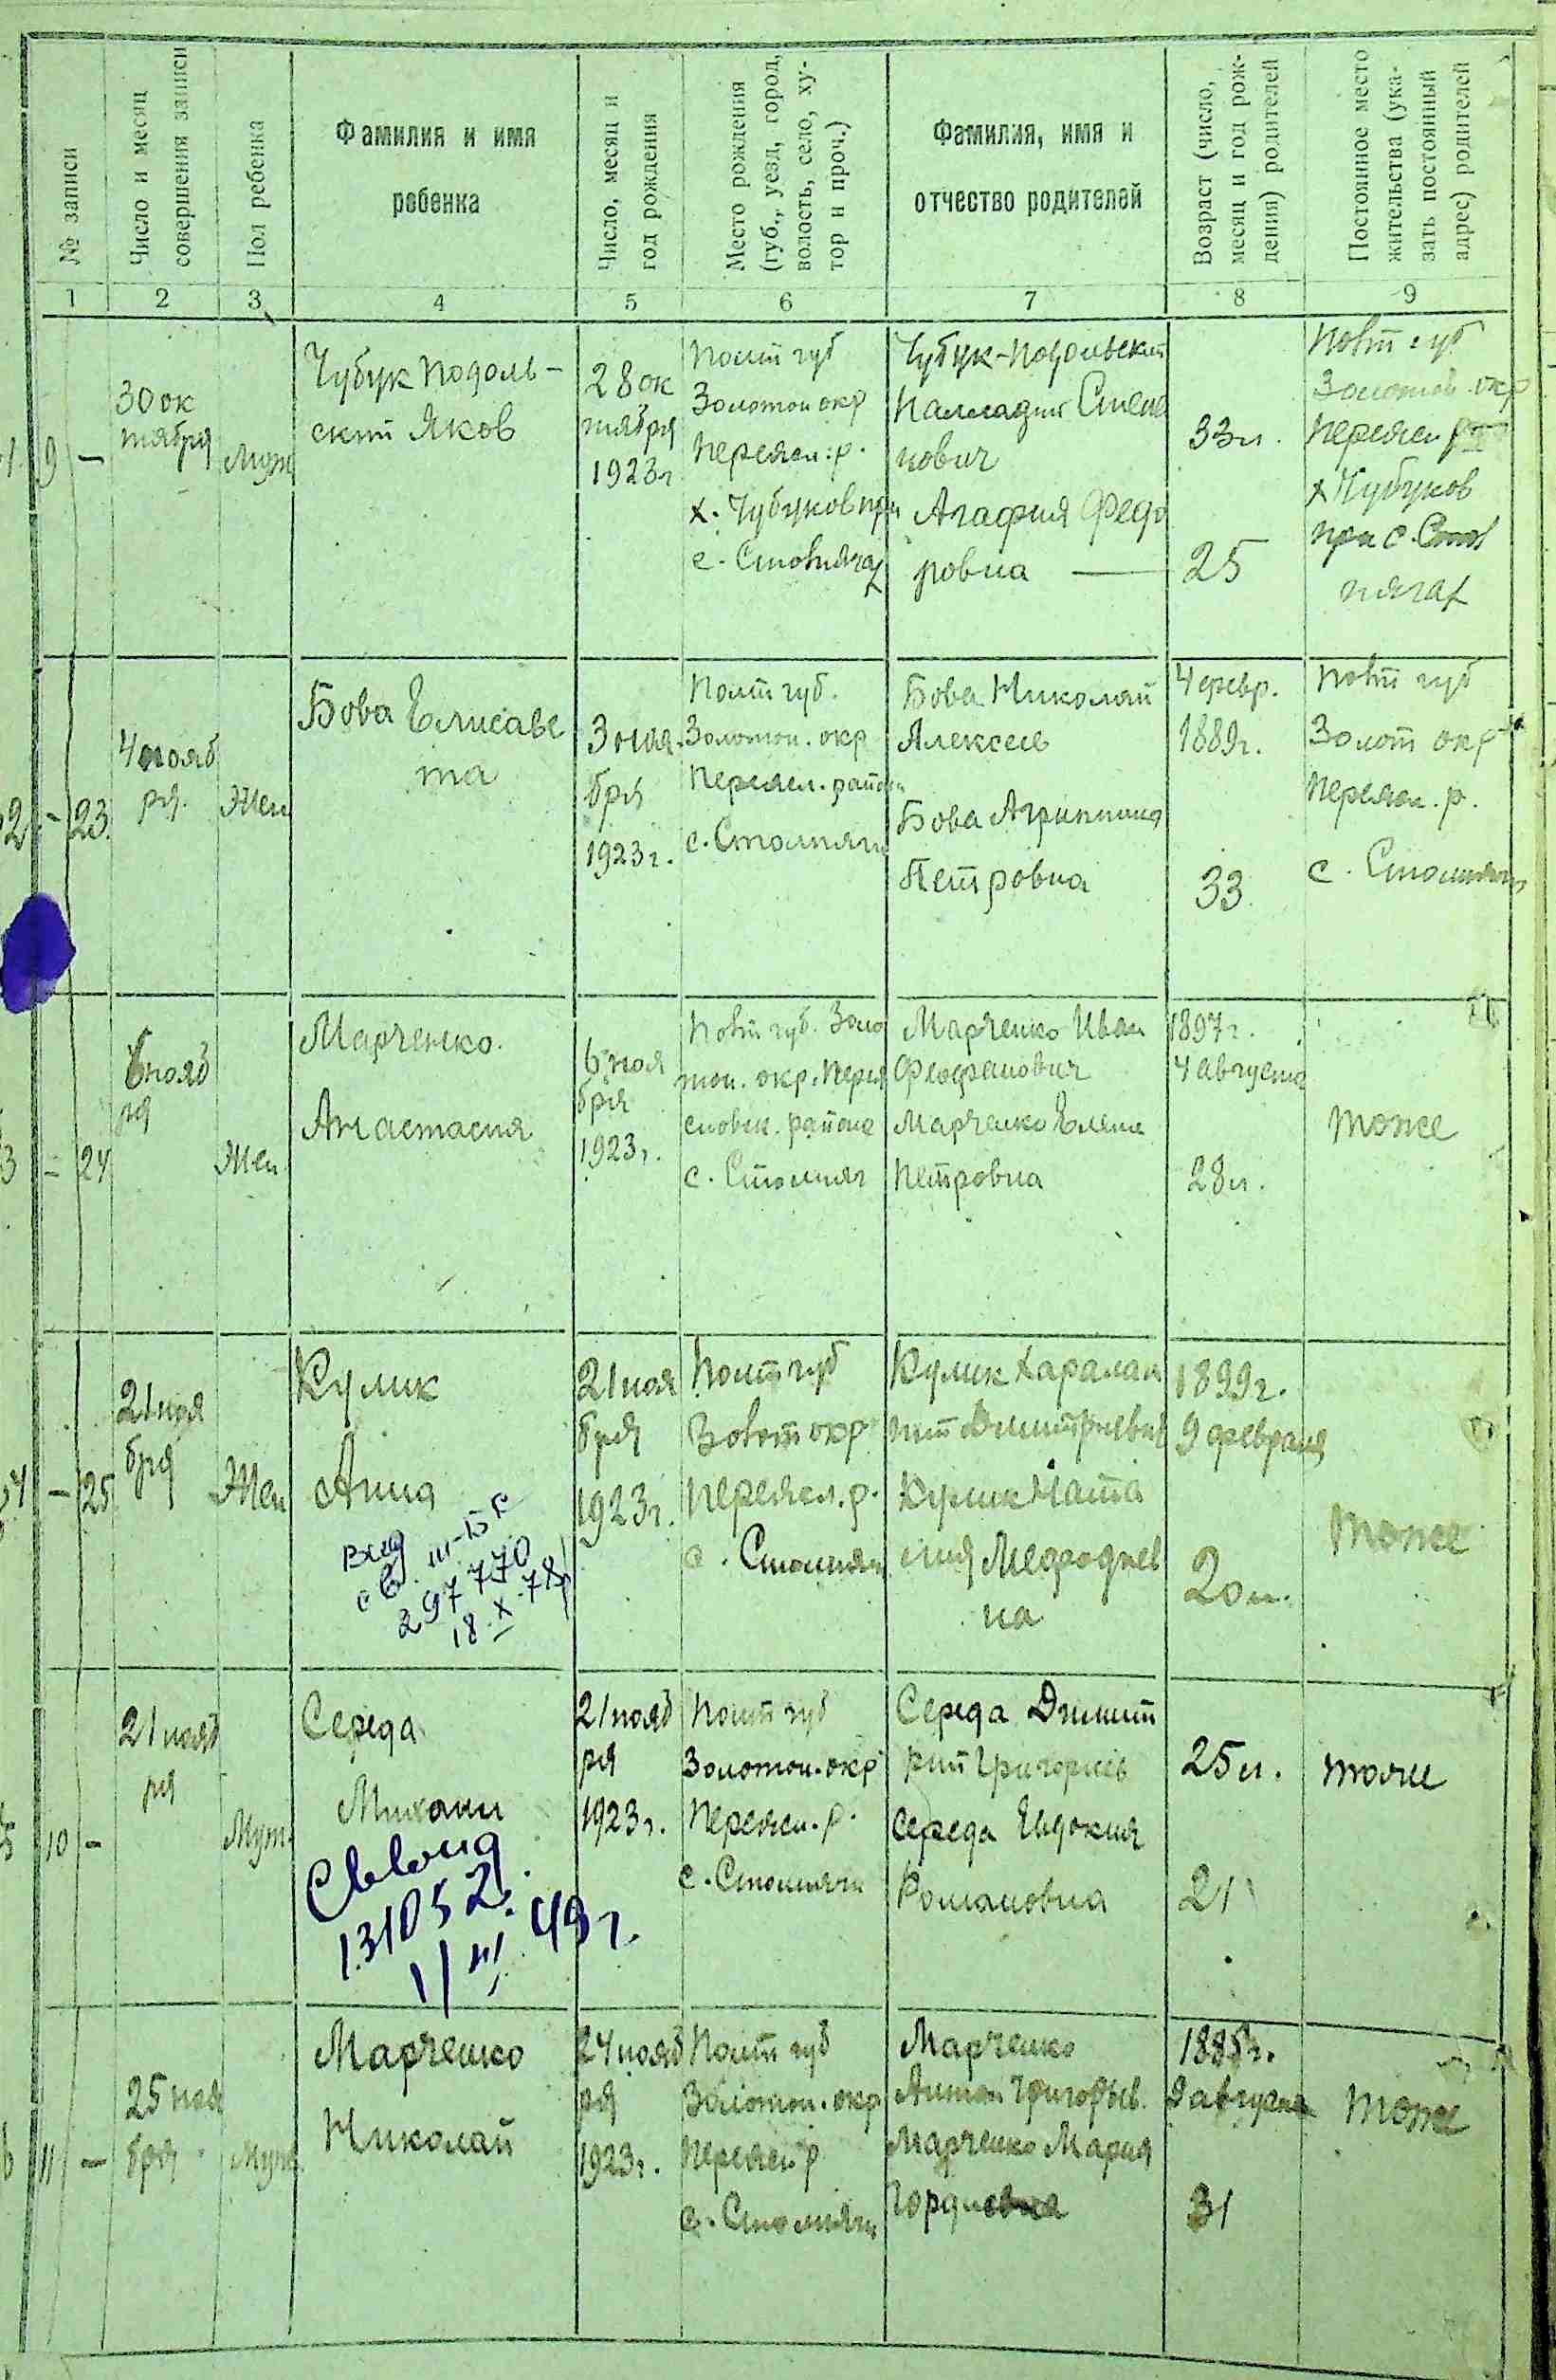 № записи
Число и месяц
совершения записи
Пол ребенка
Фамилия и имя
ребенка
Число, месяц и
год рождения
Место рождения
(губ., уезд, город,
волость, село, ху-
тор и проч.)
Фамилия, имя и
отчество родителей
Возраст (число,
месяц и год рож-
дения) родителей
Постоянное место
жительства (ука-
зать постоянный
адрес) родителей
1 2 3 4 5 6 7 8 9
9 —
30 ок
тября
Муж
Чубук Подоль-
ский Яков
28 ок
тября
1923г
Полт губ
Золотон окр
Переясл. р.
х. Чубуков при
с. Стовпягах
Чубук-Подольский
Палладий Степа
нович
Агафия Федо
ровна —
33 л.
25
Полт губ
Золотон. окр
Переясл. р
х Чубуков
при с. Стов
пягах
2 - 23
4 нояб
ря.
Жен
Бова Елисаве
та
3 ноя.
бря
1923г.
Полт губ.
Золотон. окр
Переясл. район
с. Столпяги
Бова Николай
Алексеев
Бова Агрипина
Петровна
4 февр.
1889г.
33
Полт губ
Золот окр
Переясл. р.
с. Столпяги
3 - 24
6 нояб
ря
Жен
Марченко
Анастасия
6 ноя
бря
1923г.
Полт губ. Золо
тон. окр. Перея
словск. района
с. Столпяг
Марченко Иван
Феофанович
Марченко Елена
Петровна
1897г.
4 августа
28 л.
тоже
4 - 25
21 ноя
бря
Жен
Кулик
Анна
21 ноя
бря
1923г.
Полт губ
Золот окр
Переясл. р.
с. Столпяги
Кулик Харалам
пий Дмитриевич
Кулик Ната
лия Мефодиев
на
1899г.
9 февраля
20 л.
тоже
297770
18 X 78р
10 —
21 нояб
ря
Муж.
Середа
Михаил
21 нояб
ря
1923г.
Полт губ
Золотон. окр
Переясл. р.
с. Столпяги
Середа Димит
рий Григорьев
Середа Евдокия
Романовна
25 л.
21
тоже
131052.
1/III 49 г.
11 —
25 ноя
бря
Муж.
Марченко
Николай
24 нояб
ря
1923г.
Полт губ
Золотон. окр
Переясл р
с. Столпяги
Марченко
Антон Григорьев.
Марченко Мария
Гордиевна
9 августа
31
тоже